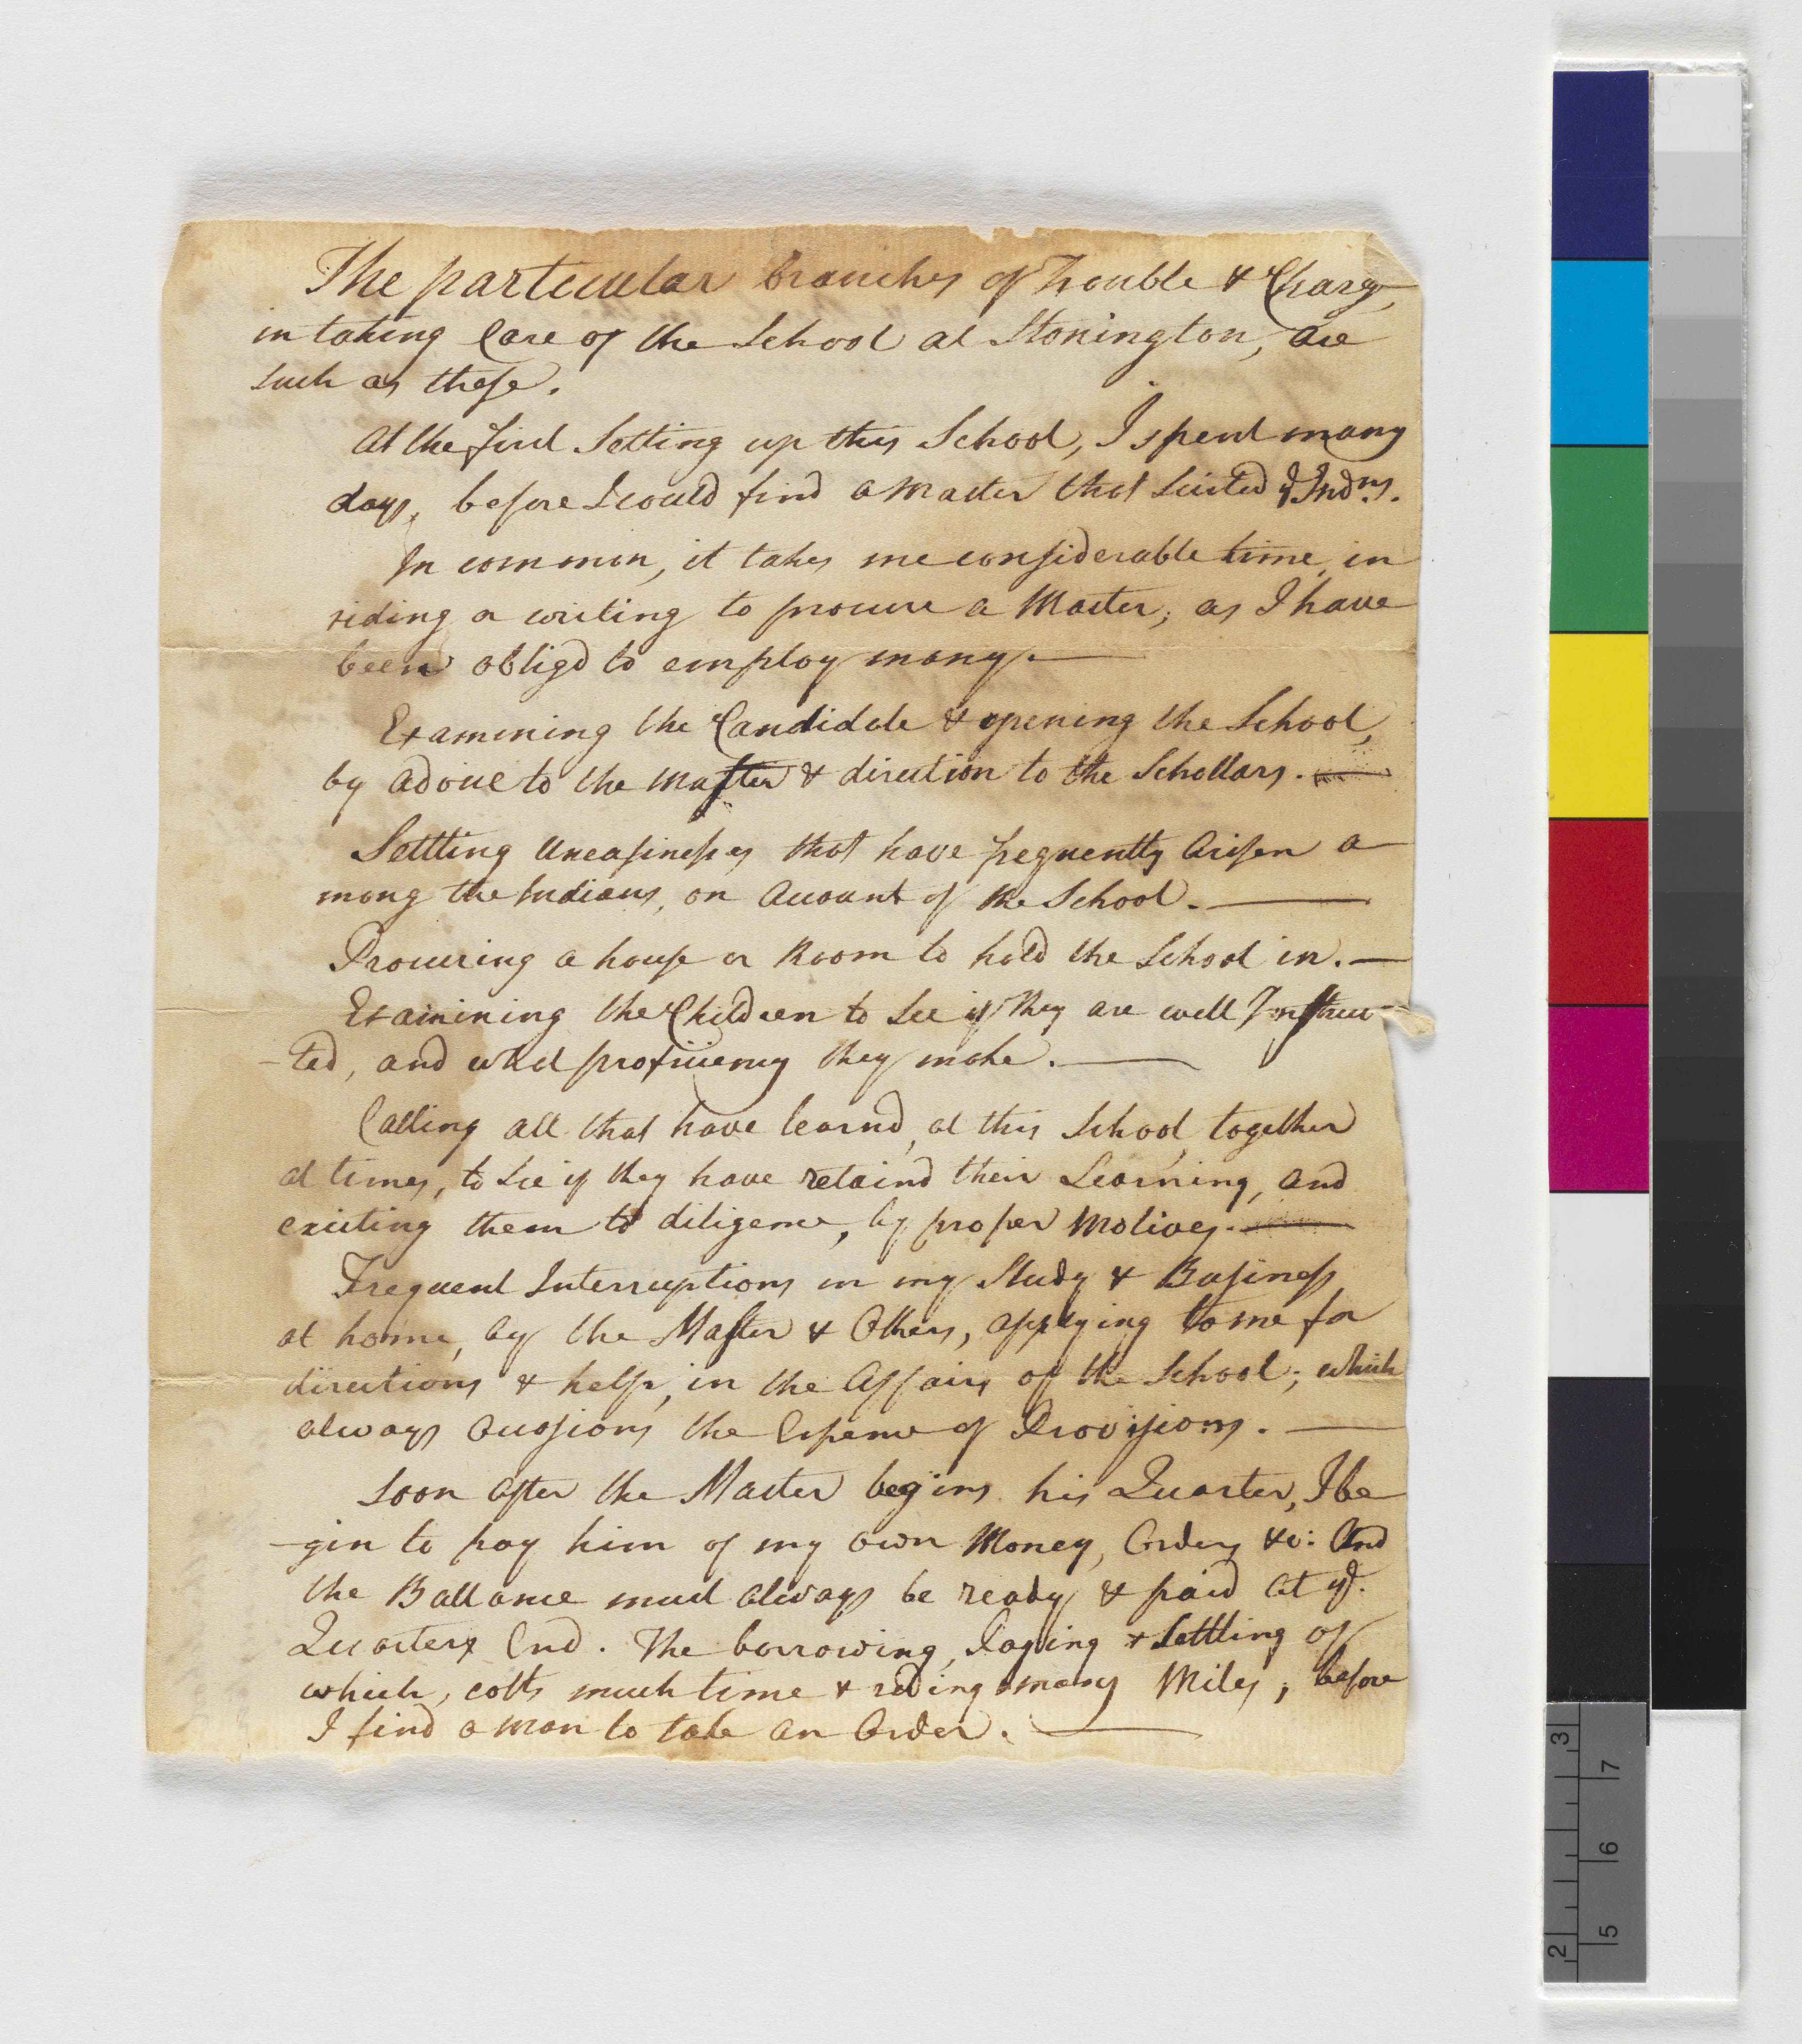 The particular branches of Trouble & Charge,
in taking Care of the School at Stonington, are
such as these.
At the first Setting up this School, I spent many
days, before I could find a Master that Suited ye Indns.
In common, it takes me considerable time, in
riding or writing to procure a Master; as I have
been obligd to employ many.—
Examining the Candidate & opening the School,
by advice to the Master & direction to the Schollars.—
Settling Uneasinesses that have frequently Arisen a
mong the Indians, on Account of the School.—
Procuring a house or Room to hold the School in.—
Examining the Children to See if they are well Instruc-
-ted, and what proficiency they make.—
Calling all that have learnd, at this School, together
at times, to See if they have retaind their Learning, and
exciting them to diligence, by proper Motives.—
Frequent Interruptions in my Study & Business
at home, by the Master & Others, applying to me for
directions & help, in the Affairs of the School; which
always Occasions the Expence of Provisions.—
Soon after the Master begins his Quarter, I be
-gin to pay him of my own Money, Orders &c: And
the Ballance must always be ready & paid at ye.
Quarters End. The borrowing, Paying & Settling of
which, costs much time & riding many Miles, before
I find a man to take an Order.—
3
2
7
6
5